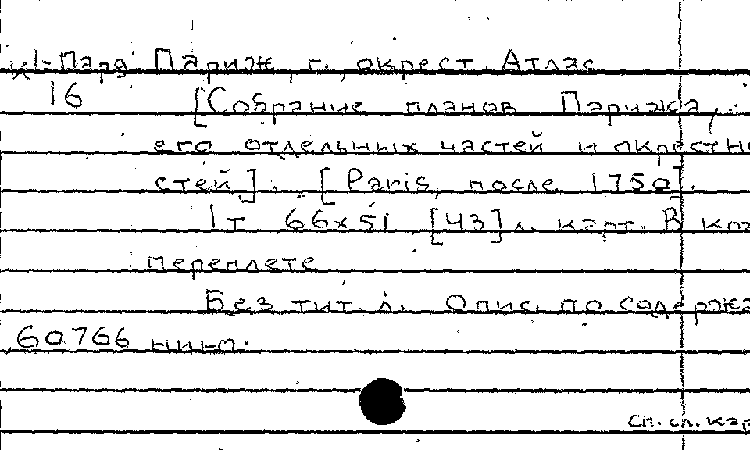 К1-Пар Париж, г., окрест. Атлас
16 [Собрание планов Парижа,
его отдельных частей и окрестно-
стей]. [Paris, после 1750].
1 т. 66x51 [43] л. карт. В кож
переплете
Без тит. л. Опис. по содержа
60766 нию.
См. сл. кар